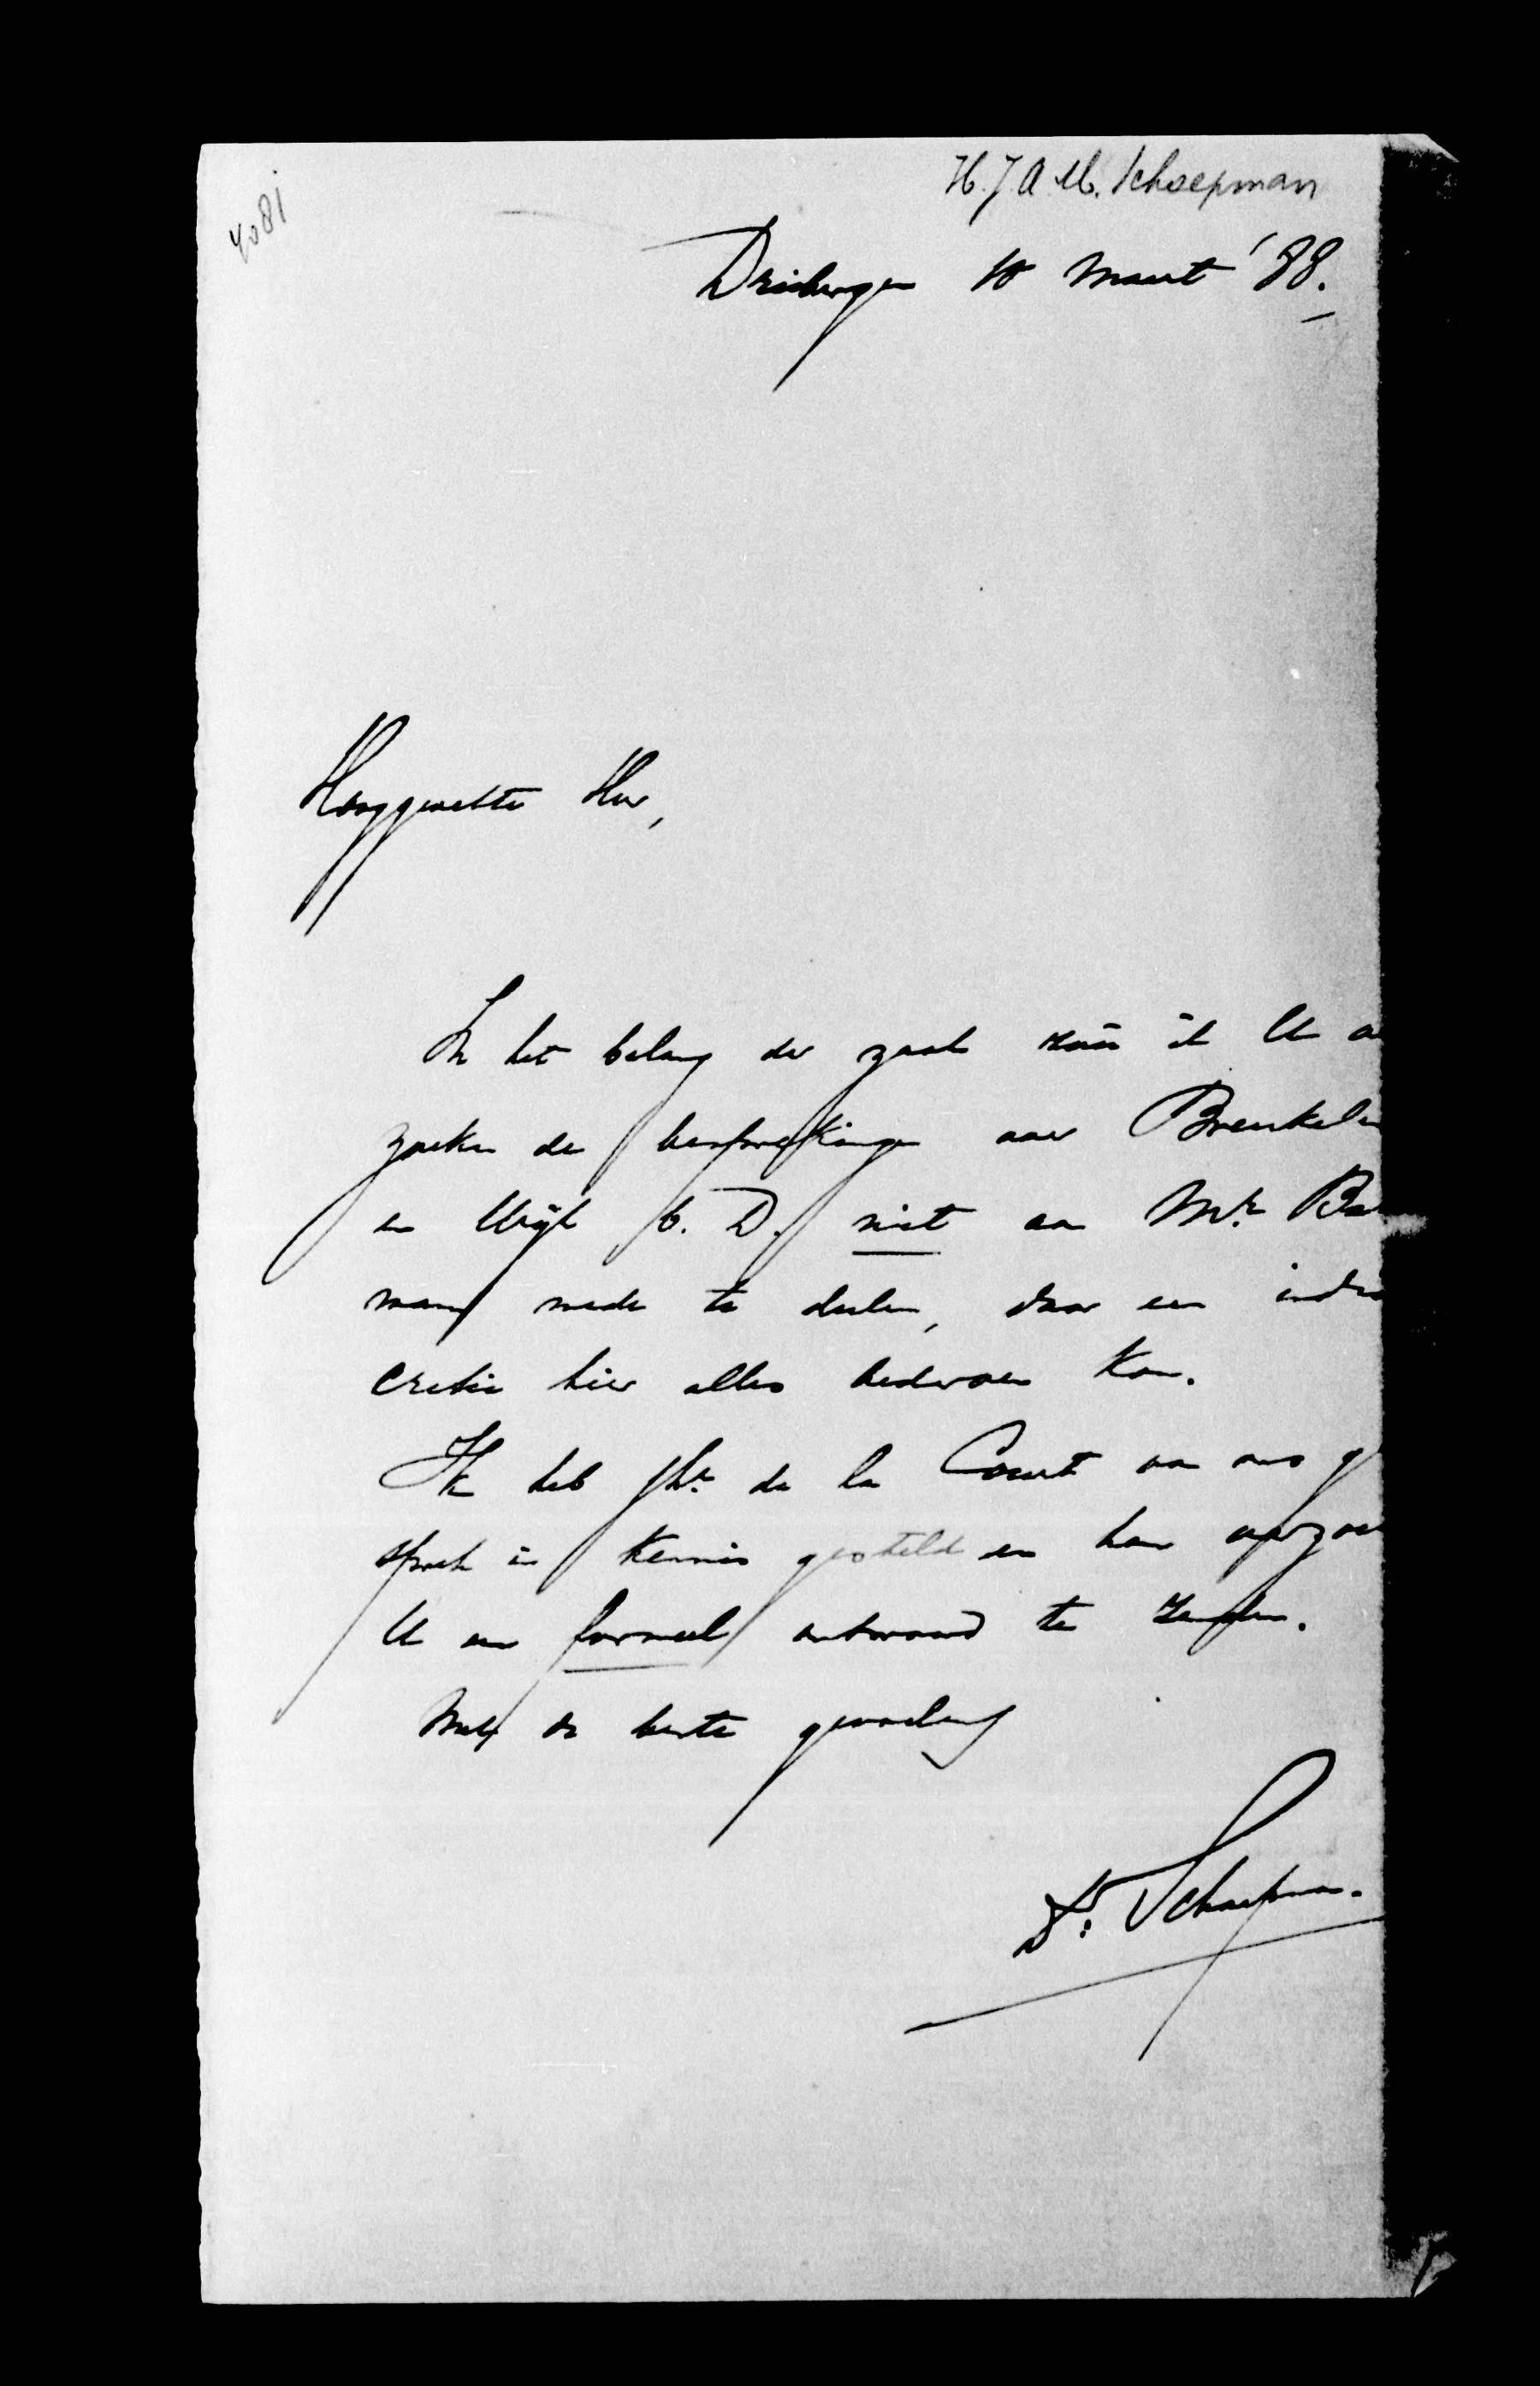 4081
H. J. A. M. Schaepman
Driebergen 10 Maart '88.
Hooggeachte Heer,
In het belang der zaak zou ik U
zoeken de besprekingen over Breukelen
en Wijk b. D. niet aan Mr. Ba
man mede te deelen, daar een indis
cretie hier alles bederven kan.
Ik heb Jhr. de la Court van ons ge
sprek in kennis gesteld en hem
U een formeel antwoord te zenden.
Met de beste gevoelens
Dr. Schaepman.